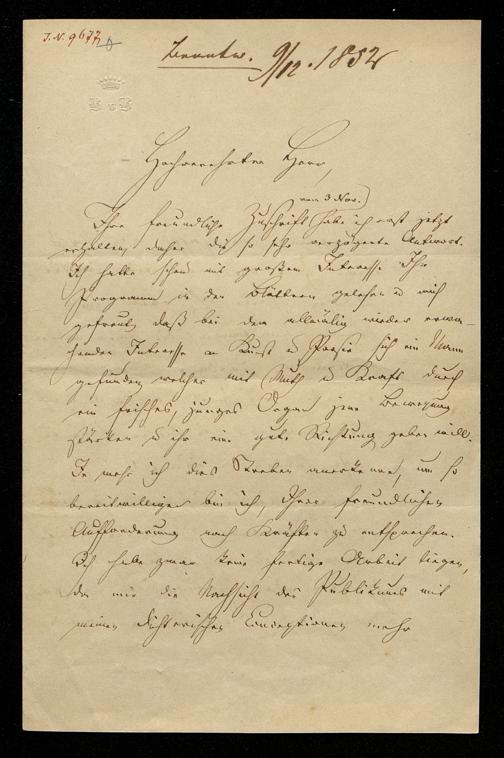 J. N. 9677
Beantw. 9/12. 1852
B v B
Hochverehrter Herr,
vom 3 Nov.
Ihre freundliche Zuschrift habe ich erst jetzt
erhalten, daher die so sehr verzögerte Antwort.
Ich hatte schon mit großem Interesse Ihr
Programm in den Blättern gelesen u mich
gefreut, daß bei dem allmälig wieder erwa-
chenden Interesse an Kunst u Poesie sich ein Mann
gefunden, welcher mit Muth u Kraft durch
ein frisches, junges Organ jene Bewegung
stärken u ihr eine gute Richtung geben will.
Je mehr ich dies Streben anerkenne, um so
bereitwilliger bin ich, Ihrer freundlichen
Aufforderung nach Kräften zu entsprechen.
Ich habe zwar keine fertige Arbeit liegen,
da mir die Nachsicht des Publikums mit
meinen dichterischen Conceptionen mehr